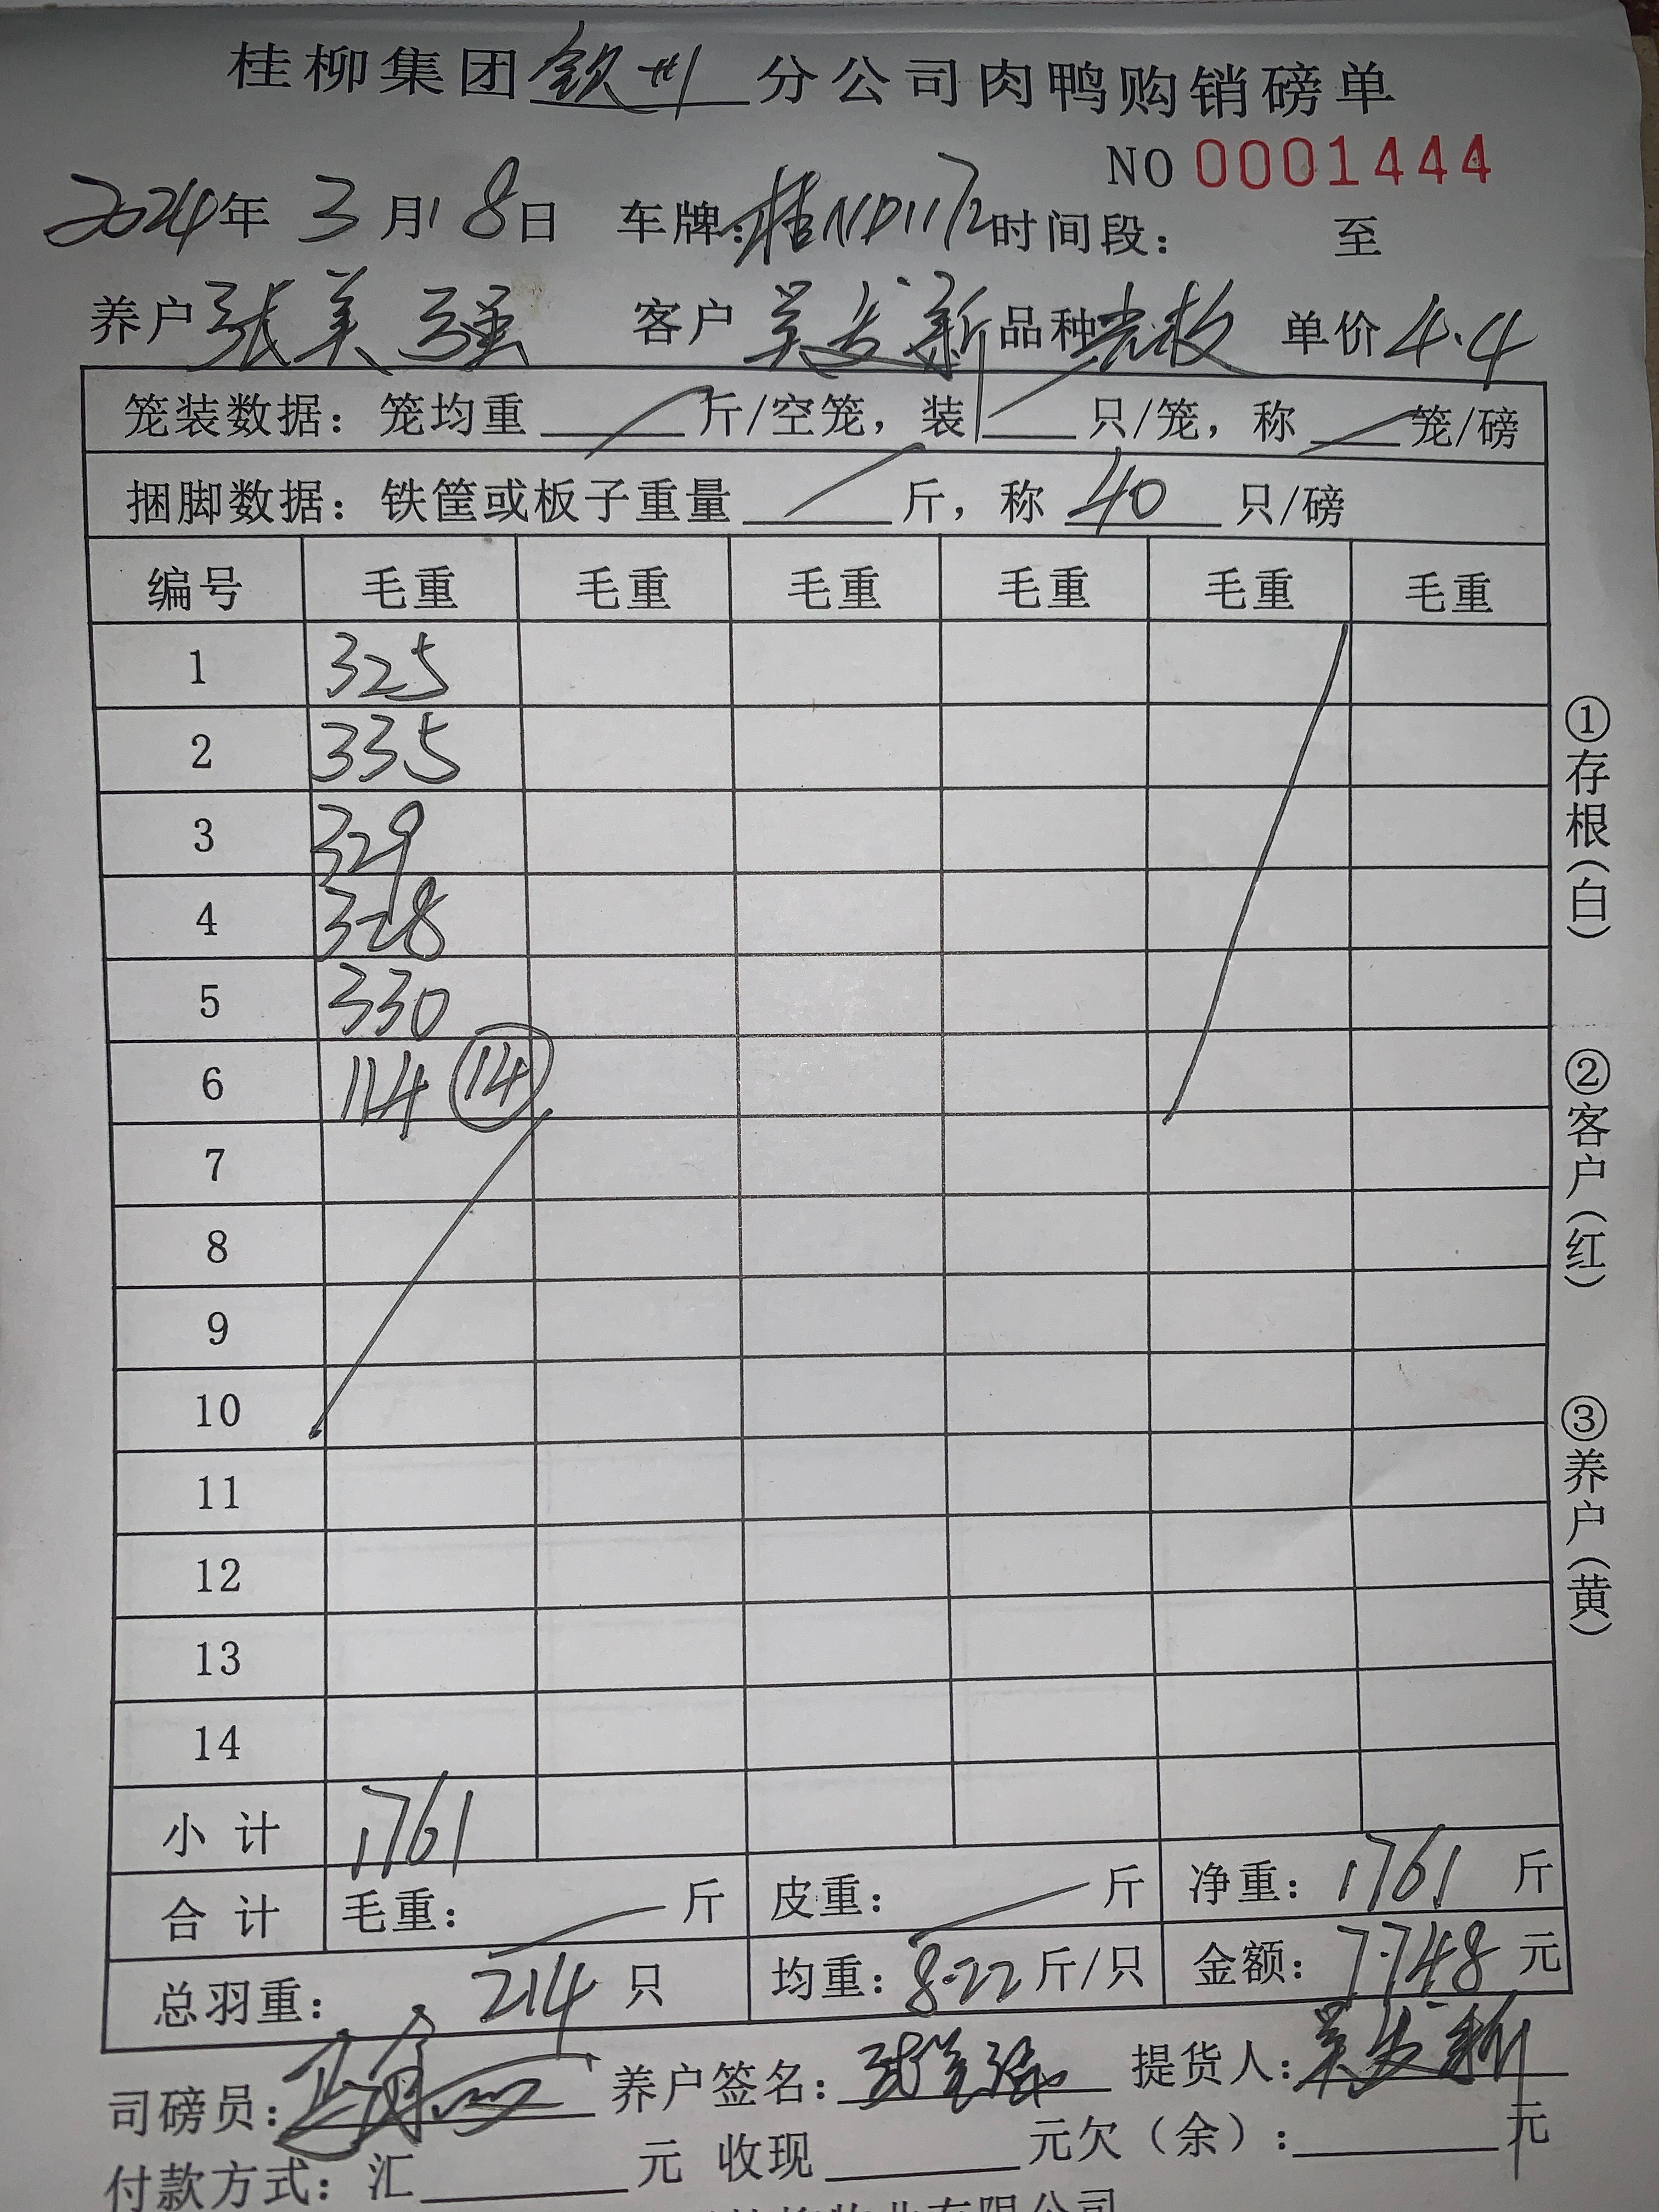 桂柳集团钦州分公司肉鸭购销磅单
NO 0001444
2024年 3月18日 车牌:桂ND1172时间段: 至
养户张美强 客户吴发新品种 单价4.4
笼装数据: 笼均重 斤/空笼, 装 只/笼, 称 笼/磅
捆脚数据: 铁筐或板子重量 斤, 称 40 只/磅
编号 毛重 毛重 毛重 毛重 毛重 毛重
1 325
2 335
3 329
4 328
5 330
6 114 14
7
8
9
10
11
12
13
14
小计 1761
合计 毛重: 斤 皮重: 斤 净重: 1761 斤
总羽重: 214 只 均重: 8.22斤/只 金额: 7748元
司磅员: 养户签名:张美强 提货人:吴发新
付款方式: 汇 元 收现 元欠(余): 元
①存根(白)
②客户(红)
③养户(黄)